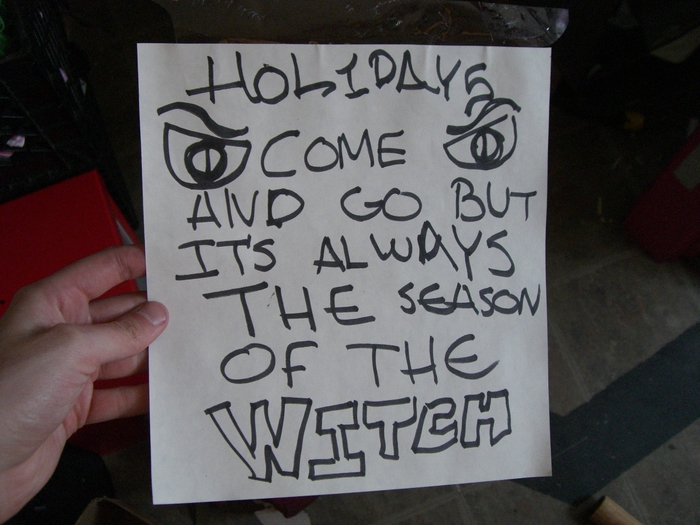 HOLIDAYS
COME
AND GO BUT
ITS ALWAYS
THE SEASON
OF THE
WITCH